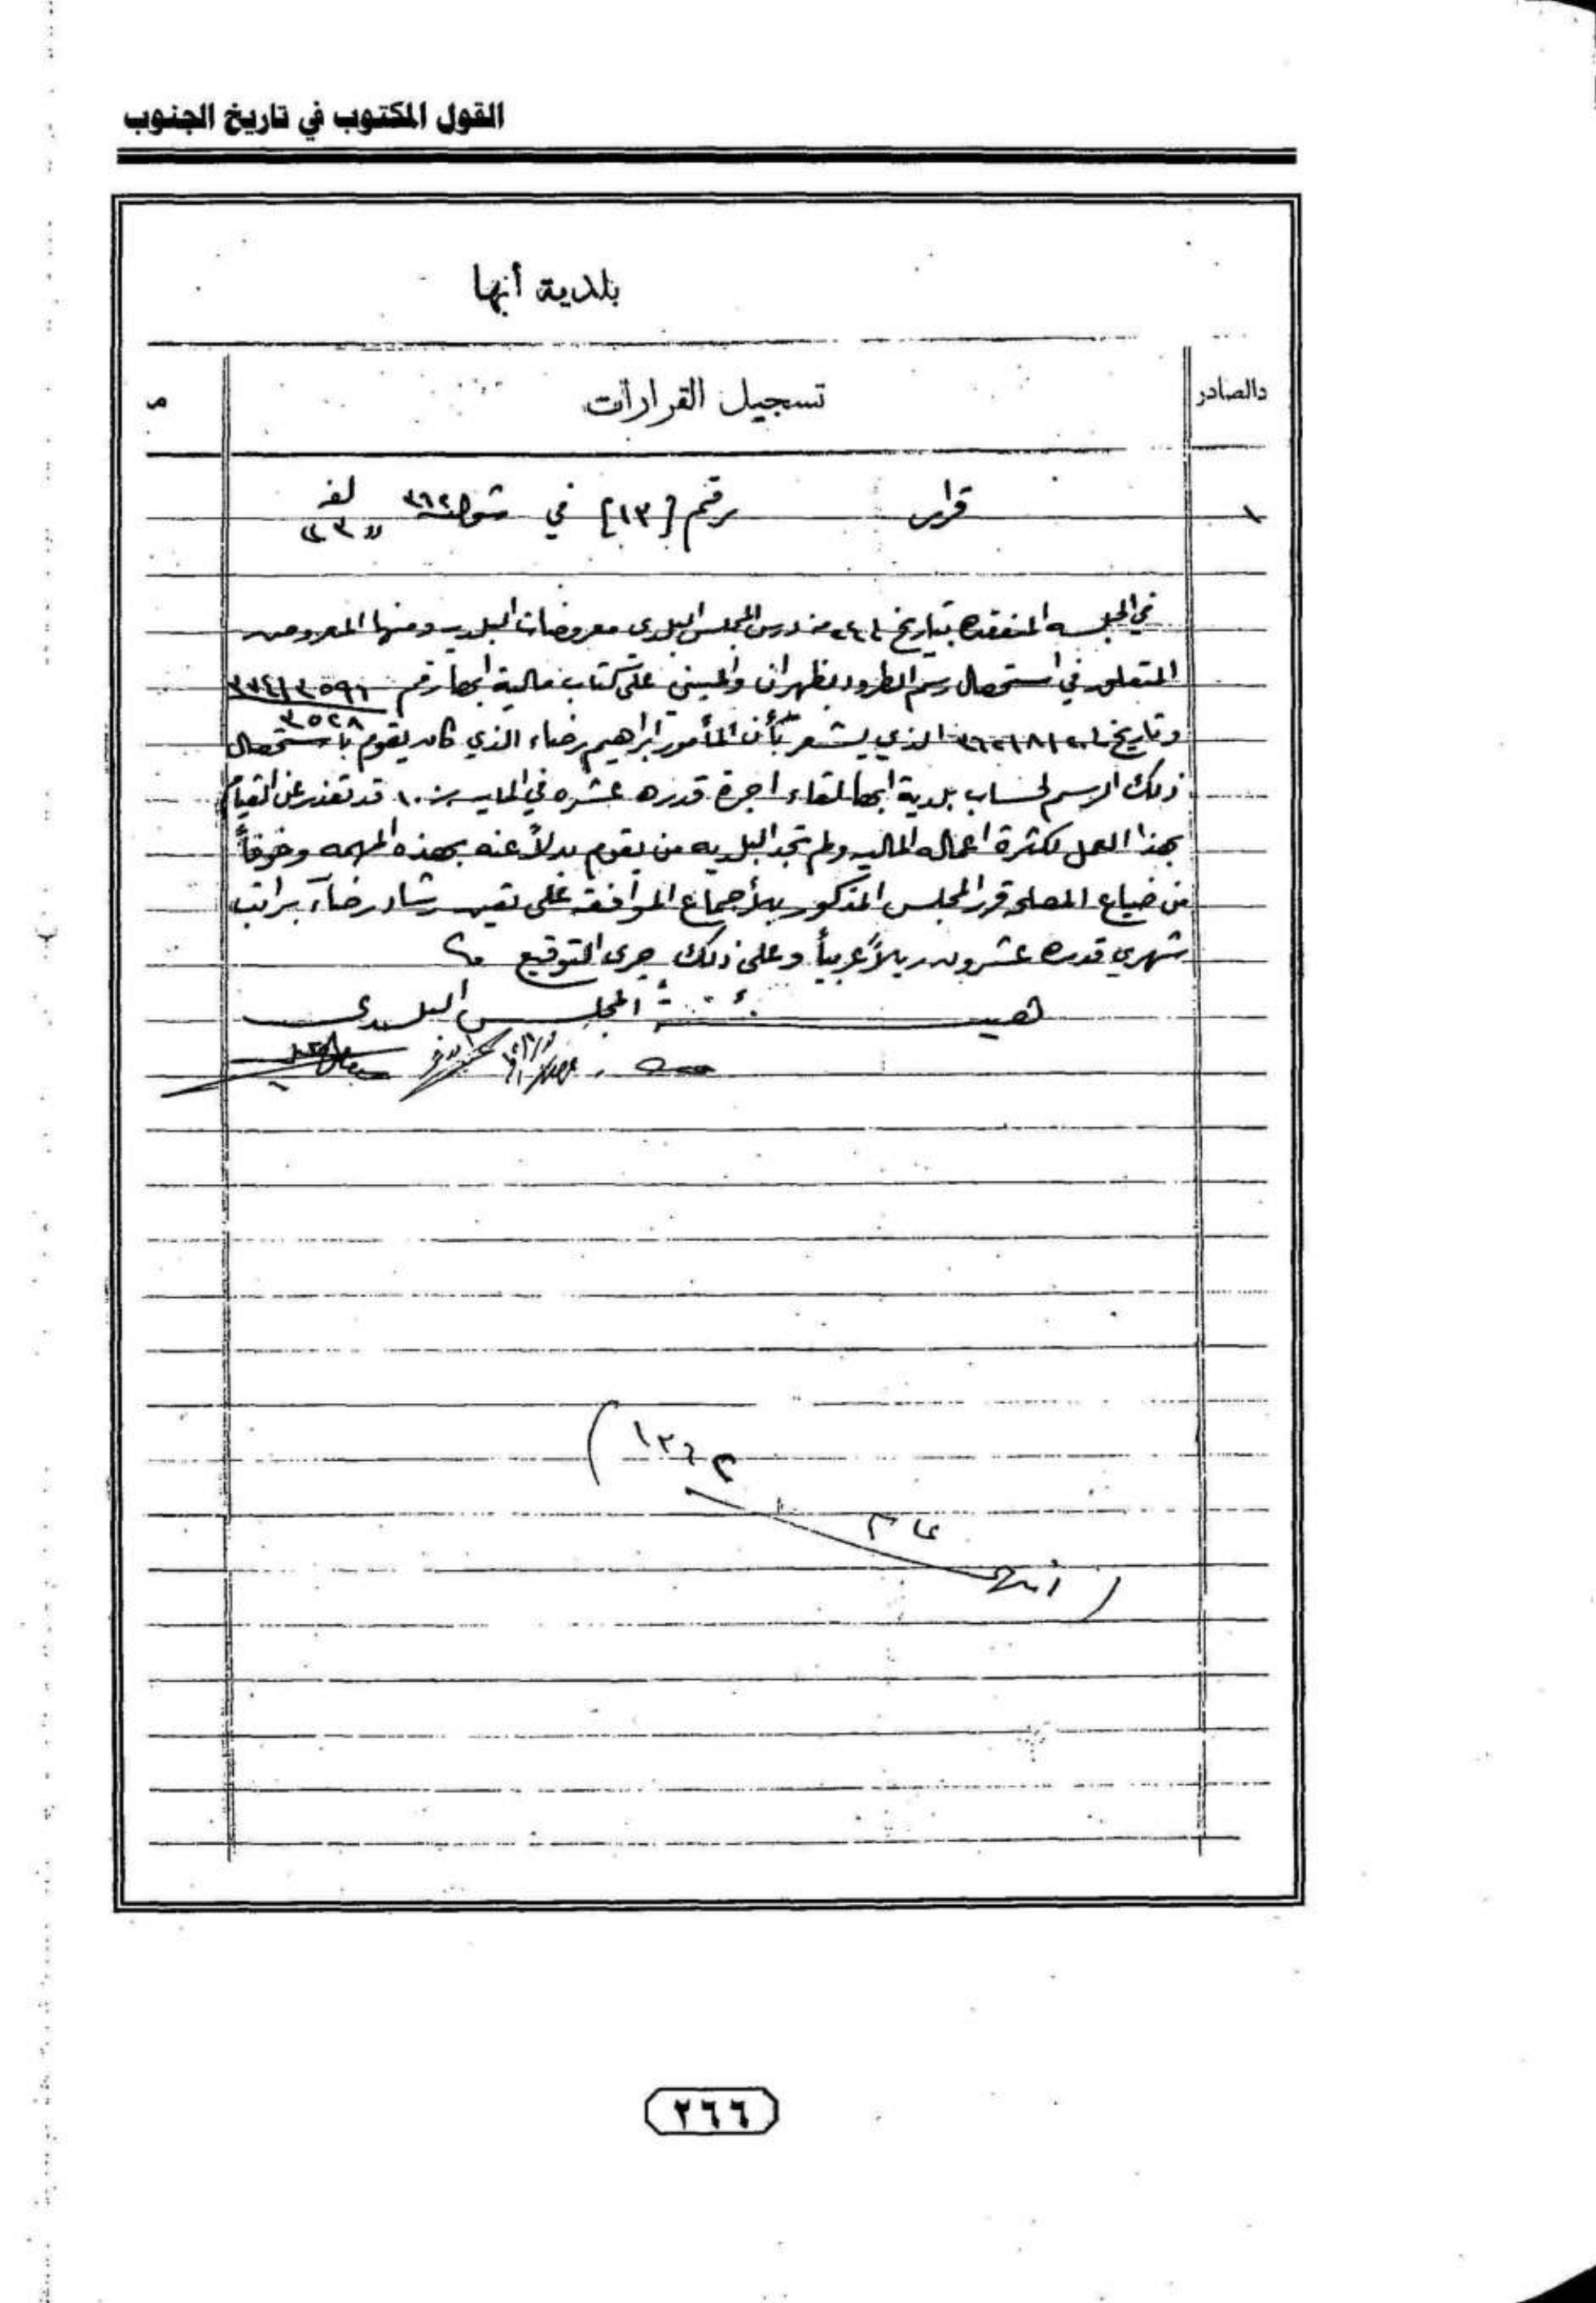 القول المكتوب في تاريخ الجنوب
بلدية أبها
دالصادر تسجيل القرارات
١ قرار رقم [١٣] في لفه «٣»
في الجلسه المنعقده بتاريخ درس المجلس البلدي معروضات البلديه ومنها المعروض
المتعلق في استحصال رسم الطرود بظهران والمبني على كتاب مالية ابها رقم
وتاريخ الذي يشعر بأن المأمور ابراهيم رضاء الذي كان يقوم بأستحصال
ذلك الرسم لحساب بلدية ابها لقاء اجرة قدره عشره في المايه ١٠ قد تعذر عن القيام
بهذا العمل لكثرة اعماله الماليه ولم تجد البلديه من يقوم بدلاً عنه بهذه المهمه وخوفاً
من ضياع المصلحه قرر المجلس المذكور بالأجماع الموافقه على تعيين رشاد رضاء براتب
شهري قدره عشرون ريالاً عربياً وعلى ذلك جرى التوقيع
هيئة المجلس البلدي
١٣٦٢)
عام
(انتهى
٢٦٦